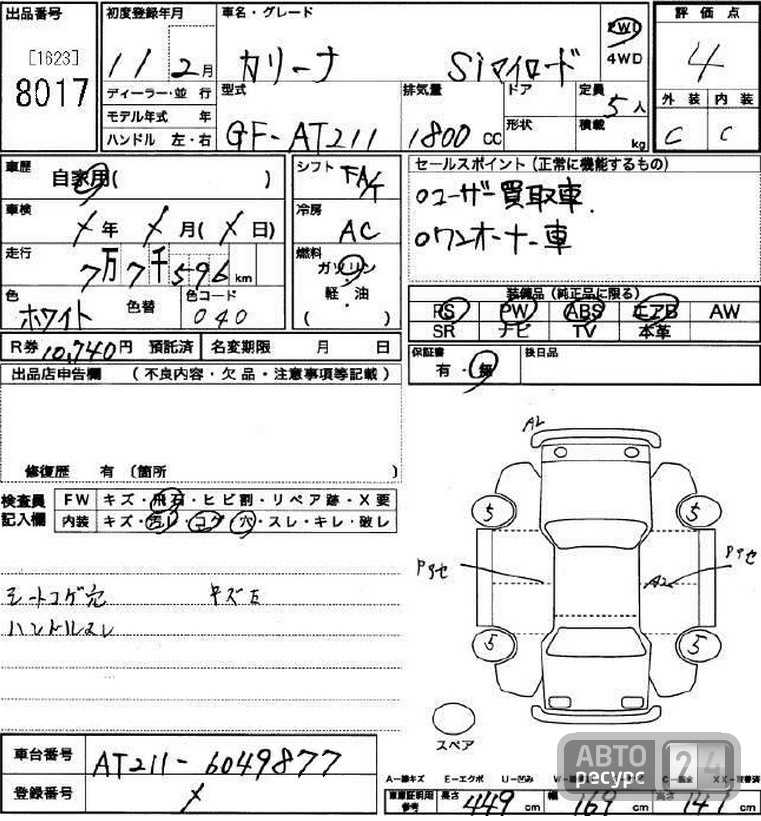 出品番号 初度登録年月 車名・グレード 評価点
[1623] 11 2月 カリーナ Siマイロード FWD 4WD 4
8017 ディーラー・並行 型式 排気量 ドア 定員 5人 外装 内装
モデル年式 年 GF-AT211 1800cc 形状 積載 kg C C
ハンドル 左・右
車歴 自家用( ) シフト FA/T セールスポイント(正常に機能するもの)
車検 年 月( 日) 冷房 AC ○ユーザー買取車.
走行 7万7千596km 燃料 ガソリン 軽・油 ( ) ○ワンオーナー車
色 ホワイト 色替 色コード 040 装備品(純正品に限る)
PS PW ABS エアB AW
SR ナビ TV 本革
R券 10,740円 預託済 名変期限 月 日 保証書 有・無 後日品
出品店申告欄 (不良内容・欠品・注意事項等記載)
修復歴 有 〔箇所 〕
検査員 FW キズ・飛石・ヒビ割・リペア跡・X要
記入欄 内装 キズ・汚レ・コゲ・穴・スレ・キレ・破レ
シートコゲ穴
ハンドルスレ
A2
5 5
A2
5 5
スペア
車台番号 AT211-6049877
登録番号
A-線キズ E-エクボ U-凹み
車庫証明用参考 長さ 449cm 幅 169cm 高さ 141cm
АВТО 24
ресурс